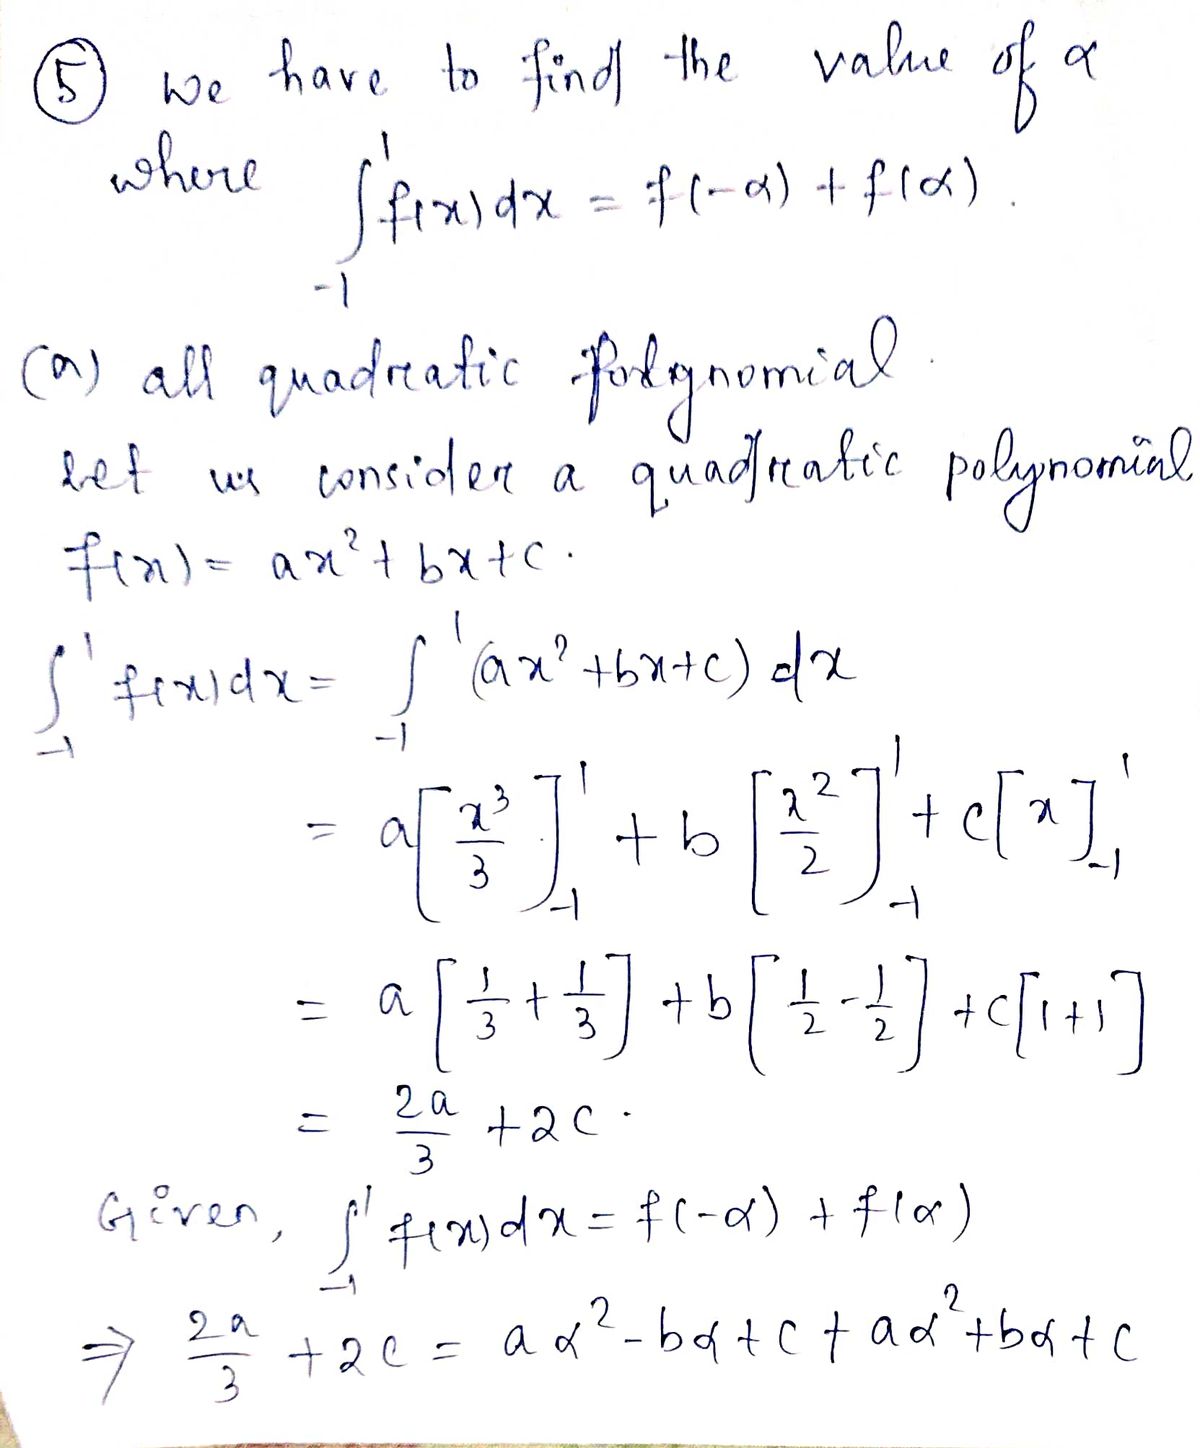 ⑤ we have to find the value of α
where ∫₋₁¹ f(x) dx = f(-α) + f(α).
(a) all quadratic polynomial.
Let us consider a quadratic polynomial
f(x) = ax² + bx + c.
∫₋₁¹ f(x) dx = ∫₋₁¹ (ax² + bx + c) dx
= a[x³/3]₋₁¹ + b[x²/2]₋₁¹ + c[x]₋₁¹
= a[1/3 + 1/3] + b[1/2 - 1/2] + c[1+1]
= 2a/3 + 2c.
Given, ∫₋₁¹ f(x) dx = f(-α) + f(α)
⇒ 2a/3 + 2c = aα² - bα + c + aα² + bα + c